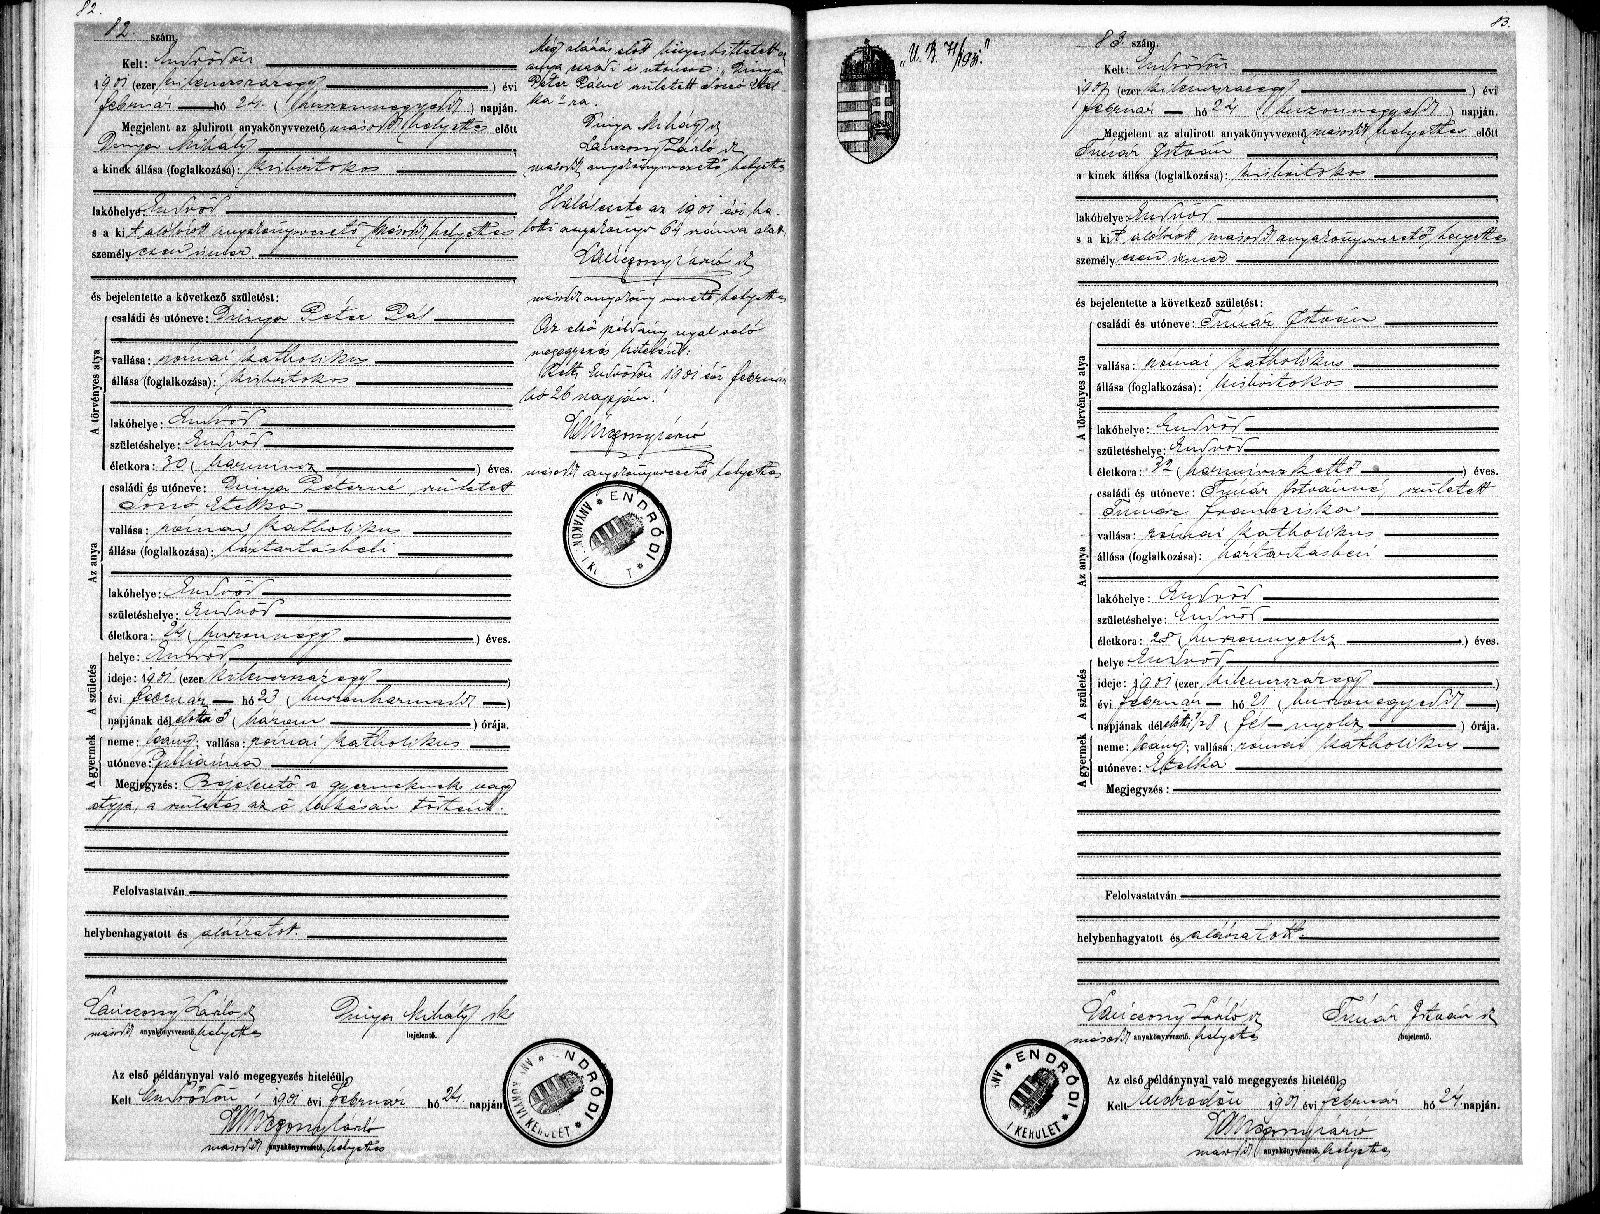 82.
82 szám.
Kelt: Endrődön
1901 (ezer kilenczszázegy) évi
február hó 24. (huszonnegyedik) napján.
Megjelent az alulirott anyakönyvvezető másodh helyettes előtt
Dinya Mihály
a kinek állása (foglalkozása): kisbirtokos
lakóhelye Endrőd
s a kit alólírott anyakönyvvezető másodh helyettes
személyesen ismer
és bejelentette a következő születést:
A törvényes atya
családi és utóneve: Dinya Péter Pál
vallása: római katholikus
állása (foglalkozása): kisbirtokos
lakóhelye: Endrőd
születéshelye: Endrőd
életkora: 30 (harmincz) éves.
Az anya
családi és utóneve: Dinya Péterné született
Etelka
vallása: római katholikus
állása (foglalkozása): háztartásbeli
lakóhelye: Endrőd
születéshelye: Endrőd
életkora: 24 (huszonnégy) éves.
A születés
helye: Endrőd
ideje: 1901 (ezer kilenczszázegy)
évi február hó 23 (huszonharmadik)
napjának dél előtti 3 (három) órája.
A gyermek
neme: leány; vallása: római katholikus
utóneve: Julianna
Megjegyzés: Bejelentő a gyermeknek nagy
atyja, a születés az ő lakásán történt.
Felolvastatván
helybenhagyatott és aláíratott.
Lánczony László sk
Dinya Mihály sk
másodh anyakönyvvezető. helyettes
bejelentő.
Az első példánynyal való megegyezés hiteléül
Kelt Endrődön, 1901 évi február hó 24. napján
Lánczony László
másodh anyakönyvvezető. helyettes
Még aláírás előtt
anya
Péter Pálné született
ka"-ra.
Dinya Mihály sk
Lánczony László sk
másodh anyakönyvvezető helyettes
Halálesete az 1901 évi ha-
lotti anyakönyv 64 száma alatt.
Lánczony László sk
másodh anyakönyvvezető helyettes
Az első példánynyal való
megegyezés hiteléül:
Kelt Endrődön 1901 évi február
hó 26 napján.
Lánczony László
másodh anyakönyvvezető helyettes
ENDRŐDI
ENDRŐDI
I KERÜLET
83.
83 szám.
Kelt: Endrődön
1901 (ezer kilenczszázegy) évi
február hó 24 (huszonnegyedik) napján.
Megjelent az alulirott anyakönyvvezető másodh helyettes előtt
Tímár István
a kinek állása (foglalkozása): kisbirtokos
lakóhelye: Endrőd
s a kit alólírott másodh anyakönyvvezető helyettes
személyesen ismer
és bejelentette a következő születést:
A törvényes atya
családi és utóneve: Tímár István
vallása: római katholikus
állása (foglalkozása): kisbirtokos
lakóhelye: Endrőd
születéshelye: Endrőd
életkora: 32 (harminczkettő) éves.
Az anya
családi és utóneve: Tímár Istvánné, született
Tímár Francziska
vallása: római katholikus
állása (foglalkozása): háztartásbeli
lakóhelye: Endrőd
születéshelye: Endrőd
életkora: 28 (huszonnyolcz) éves.
A születés
helye Endrőd
ideje: 1901 (ezer kilenczszázegy)
évi február hó 21 (huszonegyedik)
napjának dél előtti ½8 (fél nyolcz) órája.
A gyermek
neme: leány; vallása: római katholikus
utóneve: Etelka
Megjegyzés:
Felolvastatván
helybenhagyatott és aláíratott.
Lánczony László sk
Tímár István sk
másodh anyakönyvvezető. helyettes
bejelentő.
Az első példánynyal való megegyezés hiteléül
Kelt Endrődön 1901 évi február hó 24 napján.
Lánczony László
másodh anyakönyvvezető. helyettes
ENDRŐDI
I KERÜLET